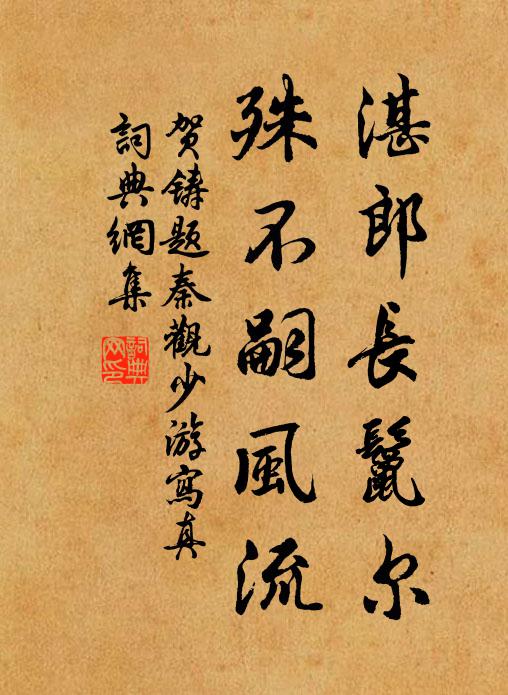 湛郎長鬣尔
殊不嗣風流
贺鑄题秦觀少游寫真
詞典網集
詞典網印